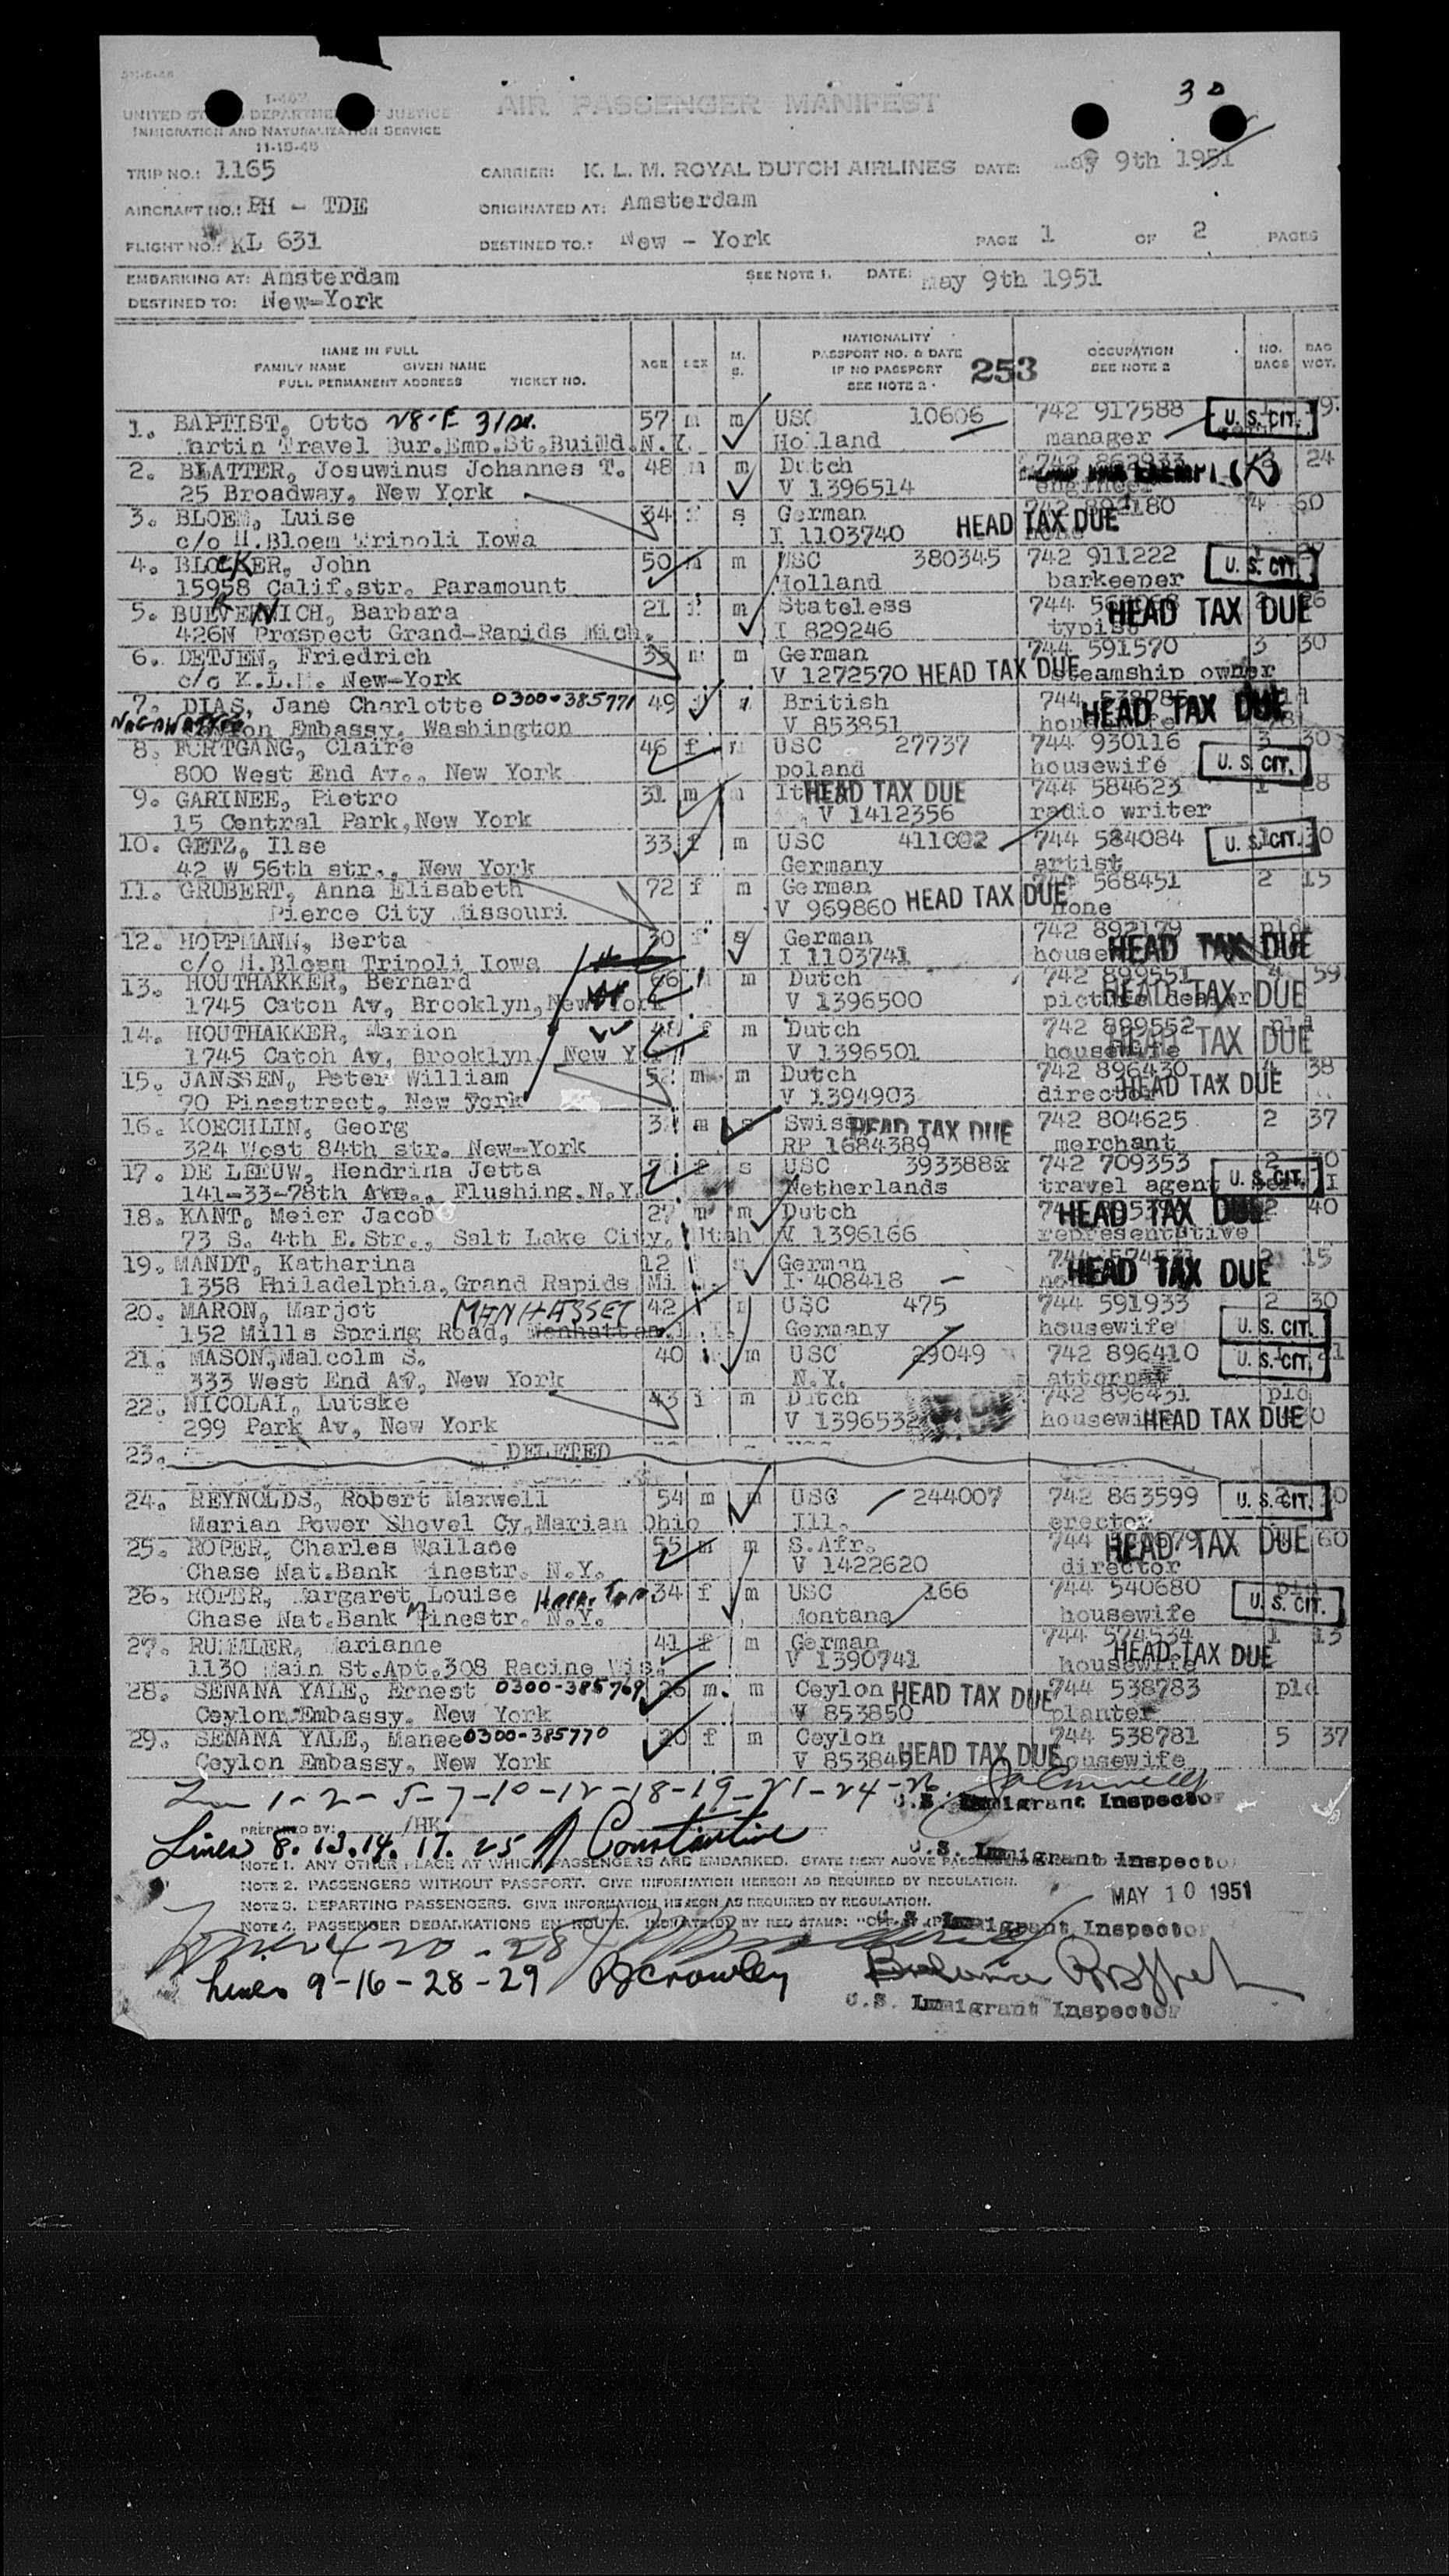 30
I-467
UNITED DEPARTMENT OF JUSTICE
IMMIGRATION AND NATURALIZATION SERVICE
11-15-45
AIR PASSENGER MANIFEST
TRIP NO.: 1165 CARRIER: K. L. M. ROYAL DUTCH AIRLINES DATE: May 9th 1951
AIRCRAFT NO.: PH - TDE ORIGINATED AT: Amsterdam
FLIGHT NO.: KL 631 DESTINED TO.: New - York PAGE 1 OF 2 PAGES
EMBARKING AT: Amsterdam SEE NOTE 1. DATE: May 9th 1951
DESTINED TO: New-York
NAME IN FULL
FAMILY NAME GIVEN NAME
FULL PERMANENT ADDRESS TICKET NO.
AGE SEX M. S.
NATIONALITY
PASSPORT NO. & DATE
IF NO PASSPORT
SEE NOTE 2.
253
OCCUPATION
SEE NOTE 2
NO. BAGS BAG WGT.
1. BAPTIST, Otto 57 m m USC 10606 742 917588 U. S. CIT.
Martin Travel Bur.Emp.St.Buildd.N.Y. Holland manager
2. BLATTER, Josuwinus Johannes T. 48 m m Dutch 24
25 Broadway, New York V 1396514 engineer
3. BLOEM, Luise 34 f s German HEAD TAX DUE 4 60
c/o H.Bloem Tripoli Iowa I 1103740
4. BLOCKER, John 50 m m USC 380345 742 911222 U. S. CIT.
15958 Calif.str. Paramount Holland barkeeper
5. Barbara 21 f m Stateless 744 HEAD TAX DUE
426N Prospect Grand-Rapids Mich. I 829246 typist
6. DETJEN, Friedrich 35 m m German 744 591570 3 30
c/o K.L.M. New-York V 1272570 HEAD TAX DUE steamship owner
7. DIAS, Jane Charlotte 0300-385771 49 British 744 538785 HEAD TAX DUE
Ceylon Embassy, Washington V 853851 housewife
8. FORTGANG, Claire 46 f m USC 27737 744 930116 3 30
800 West End Av., New York poland housewife U. S. CIT.
9. GARINEE, Pietro 31 m m HEAD TAX DUE 744 584623 1 28
15 Central Park,New York V 1412356 radio writer
10. GETZ, Ilse 33 f m USC 411002 744 584084 U. S. CIT. 30
42 W 56th str., New York Germany artist
11. GRUBERT, Anna Elisabeth 72 f m German HEAD TAX DUE 568451 2 15
Pierce City Missouri V 969860 none
12. HOPPMANN, Berta 30 f s German 742 892179 HEAD TAX DUE
c/o H.Bloem Tripoli Iowa I 1103741
13. HOUTHAKKER, Bernard 66 m m Dutch 742 899551 4 59
1745 Caton Av, Brooklyn,New York V 1396500 picture dealer HEAD TAX DUE
14. HOUTHAKKER, Marion 48 f m Dutch 742 899552 pld
1745 Caton Av, Brooklyn, New York V 1396501 housewife HEAD TAX DUE
15. JANSSEN, Peter William m m Dutch 742 896430 4 38
70 Pinestreet, New York V 1394903 director HEAD TAX DUE
16. KOECHLIN, Georg m s Swiss HEAD TAX DUE 742 804625 2 37
324 West 84th str. New-York RP 1684389 merchant
17. DE LEEUW, Hendrina Jetta f s USC 393388 742 709353 2 30
141-33-78th Ave., Flushing.N.Y. Netherlands travel agent U. S. CIT.
18. KANT, Meier Jacob 27 m m Dutch HEAD TAX DUE 2 40
73 S. 4th E.Str., Salt Lake City, Utah V 1396166 representative
19. MANDT, Katharina 12 s German 744 574531 2 15
1358 Philadelphia,Grand Rapids Mi I 408418 HEAD TAX DUE
20. MARON, Marjot MANHASSET 42 USC 475 744 591933 2 30
152 Mills Spring Road, Manhattan Germany housewife U. S. CIT.
21. MASON,Malcolm S. 40 m USC 29049 742 896410 U. S. CIT.
333 West End AV, New York N.Y. attorney
22. NICOLAI, Lutske 43 f m Dutch 742 896431 pld
299 Park Av, New York V 1396532 housewife HEAD TAX DUE
23. DELETED
24. REYNOLDS, Robert Maxwell 54 m m USC 244007 742 863599 U. S. CIT.
Marian Power Shovel Cy,Marian Ohio Ill. erector
25. ROPER, Charles Wallace 55 m m S.Afr. 744 HEAD TAX DUE 60
Chase Nat.Bank inestr. N.Y. V 1422620 director
26. ROPER, Margaret Louise 34 f m USC 166 744 540680 pld
Chase Nat.Bank Pinestr. N.Y. Montana housewife U. S. CIT.
27. RUMMLER, Marianne 41 f m German 744 574534 1 13
1130 Main St.Apt.308 Racine Wis. V 1390741 housewife HEAD TAX DUE
28. SENANA YALE, Ernest 0300-385769 26 m. m Ceylon HEAD TAX DUE 744 538783 pld
Ceylon Embassy, New York V 853850 planter
29. SENANA YALE, Manee 0300-385770 20 f m Ceylon 744 538781 5 37
Ceylon Embassy, New York V 853849 HEAD TAX DUE housewife
1-2-5-7-10-12-18-19-21-24-26
U.S. Immigrant Inspector
PREPARED BY: /HK
Lines 8. 13. 14. 17. 25 Constantine
U.S. Immigrant Inspector
NOTE 1. ANY OTHER PLACE AT WHICH PASSENGERS ARE EMBARKED. STATE NEXT ABOVE
NOTE 2. PASSENGERS WITHOUT PASSPORT. GIVE INFORMATION HEREON AS REQUIRED BY REGULATION.
NOTE 3. DEPARTING PASSENGERS. GIVE INFORMATION HEREON AS REQUIRED BY REGULATION.
MAY 10 1951
NOTE 4. PASSENGER DEBARKATIONS EN ROUTE. INDICATE BY RED STAMP:
U.S. Immigrant Inspector
Lines 9-16-28-29 Crowley
U.S. Immigrant Inspector